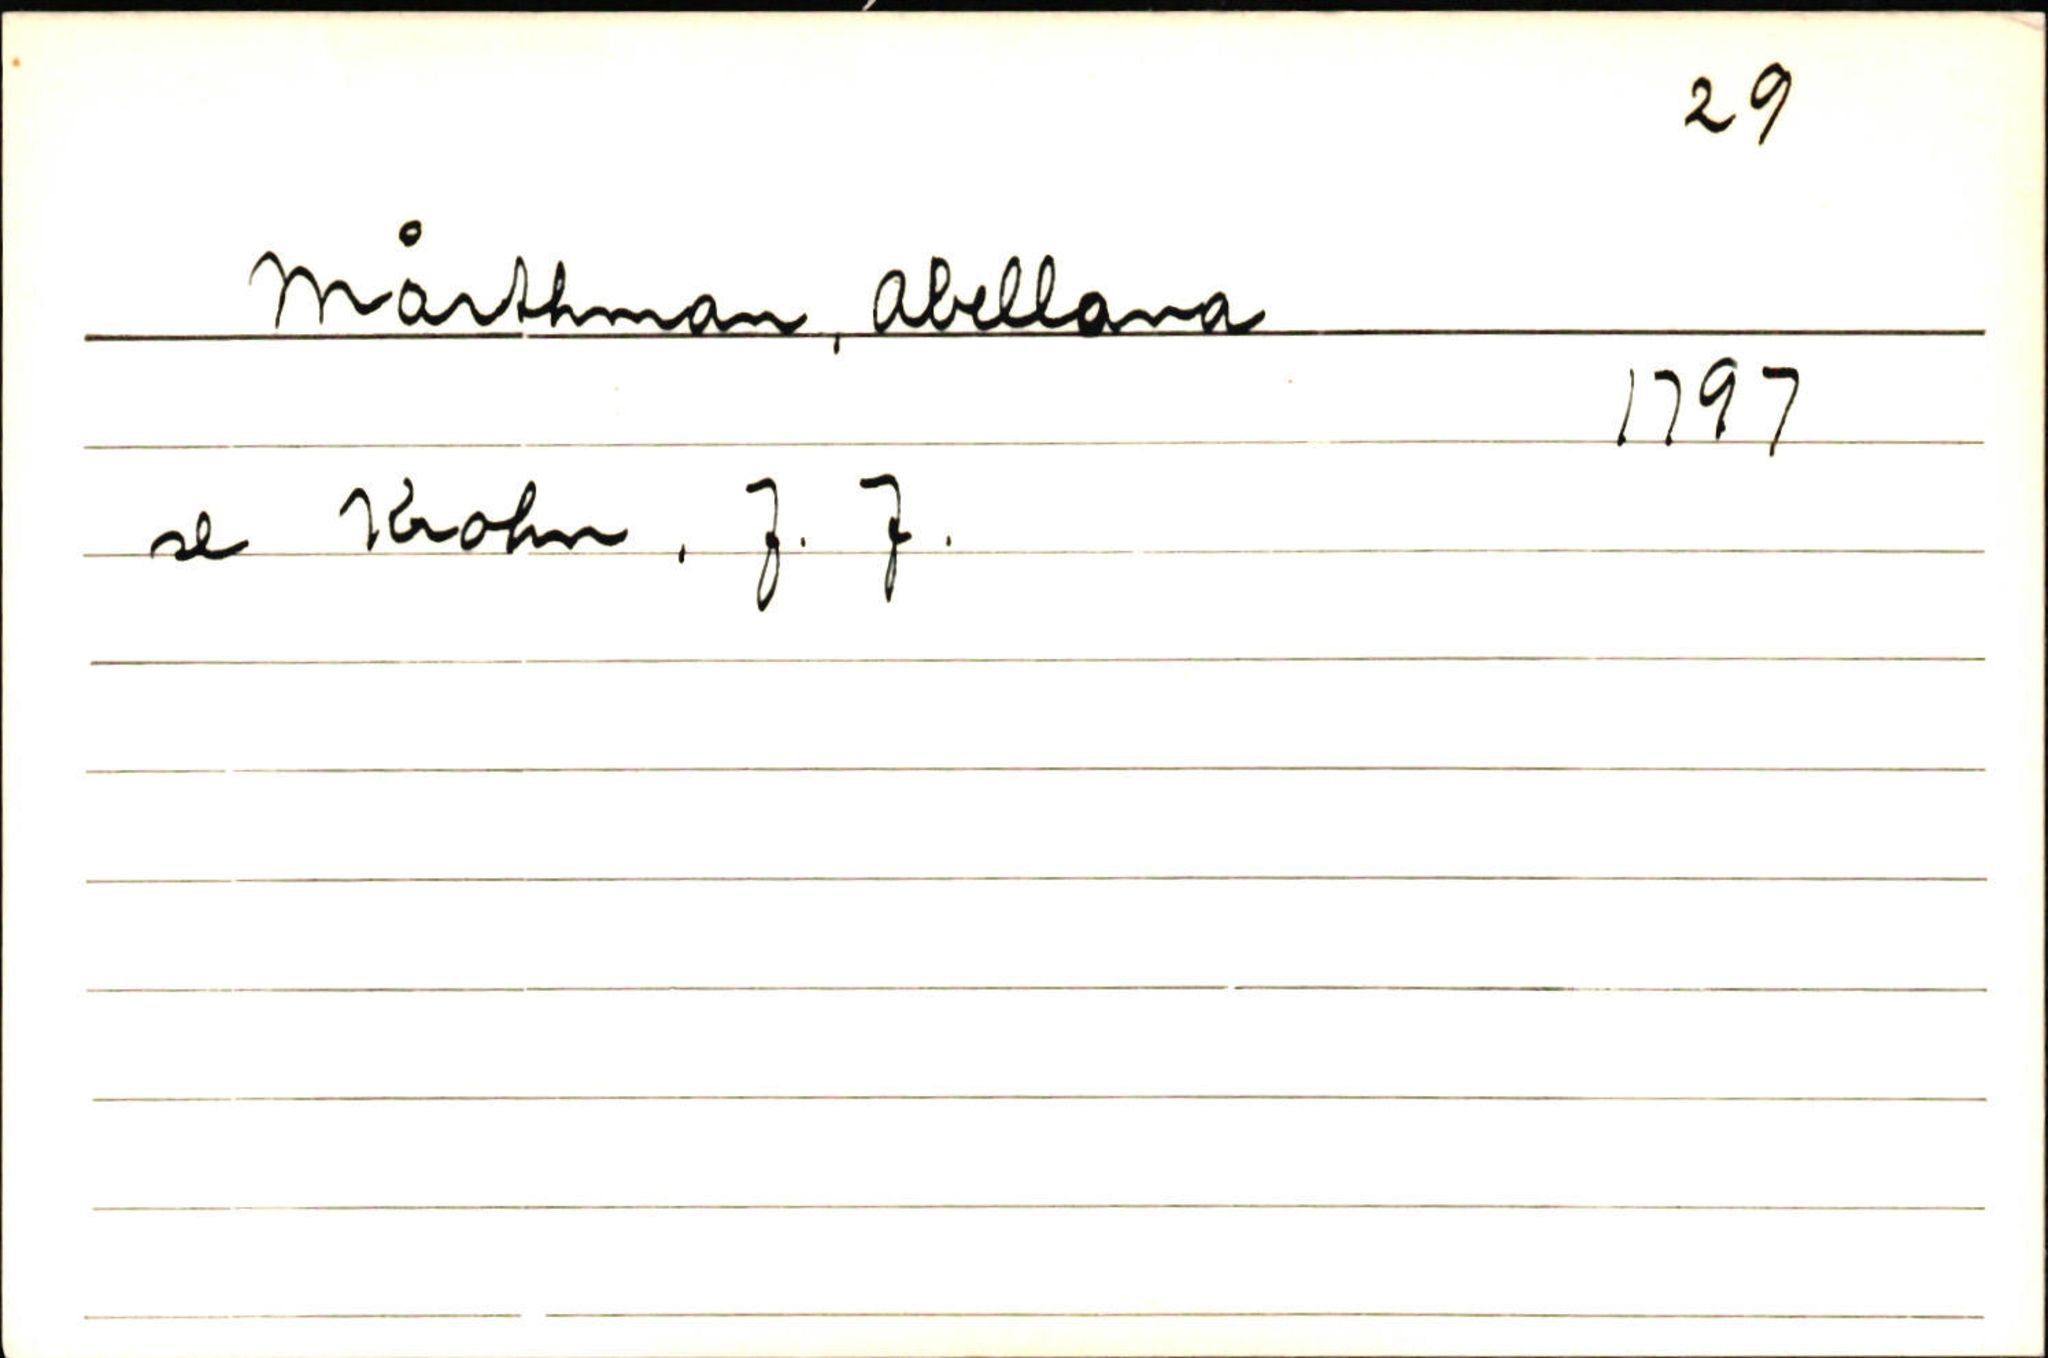 29
Mårthman, Abellana
1797
se Krohn, J. F.